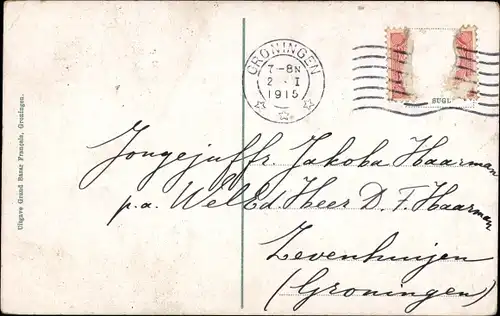 GRONINGEN
7-8N
2 . I
1915
SUGL
Uitgave Grand Bazar Français, Groningen.
Jongejuffr. Jakoba Haarman
p.a. WelEd Heer D. F. Haarman
Zevenhuijen
(Groningen)